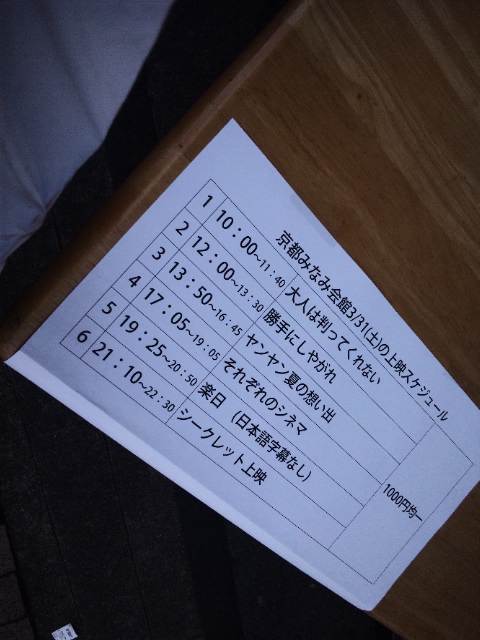 京都みなみ会館3/31(土)の上映スケジュール
1 10：00~11：40 大人は判ってくれない
2 12：00~13：30 勝手にしやがれ
3 13：50~16：45 ヤンヤン夏の想い出
4 17：05~19：05 それぞれのシネマ
5 19：25~20：50 楽日 （日本語字幕なし）
6 21：10~22：30 シークレット上映
1000円均一